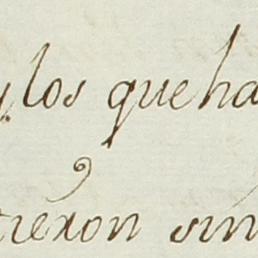 y los que ha
tieron sin